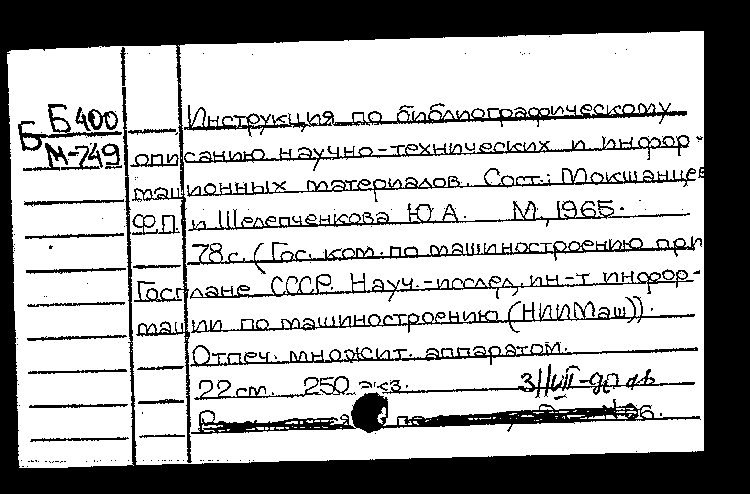 Б Б400
М-749
Инструкция по библиографическому
описанию научно-технических и инфор-
мационных материалов. Сост.: Мокшанцев
Ф.П. и Шелепченкова Ю.А. М., 1965.
78с. (Гос. ком. по машиностроению при
Госплане СССР. Науч.-исслед. ин-т инфор-
мации по машиностроению (НИИМаш)).
Отпеч. множит. аппаратом.
22 см. 250 экз.